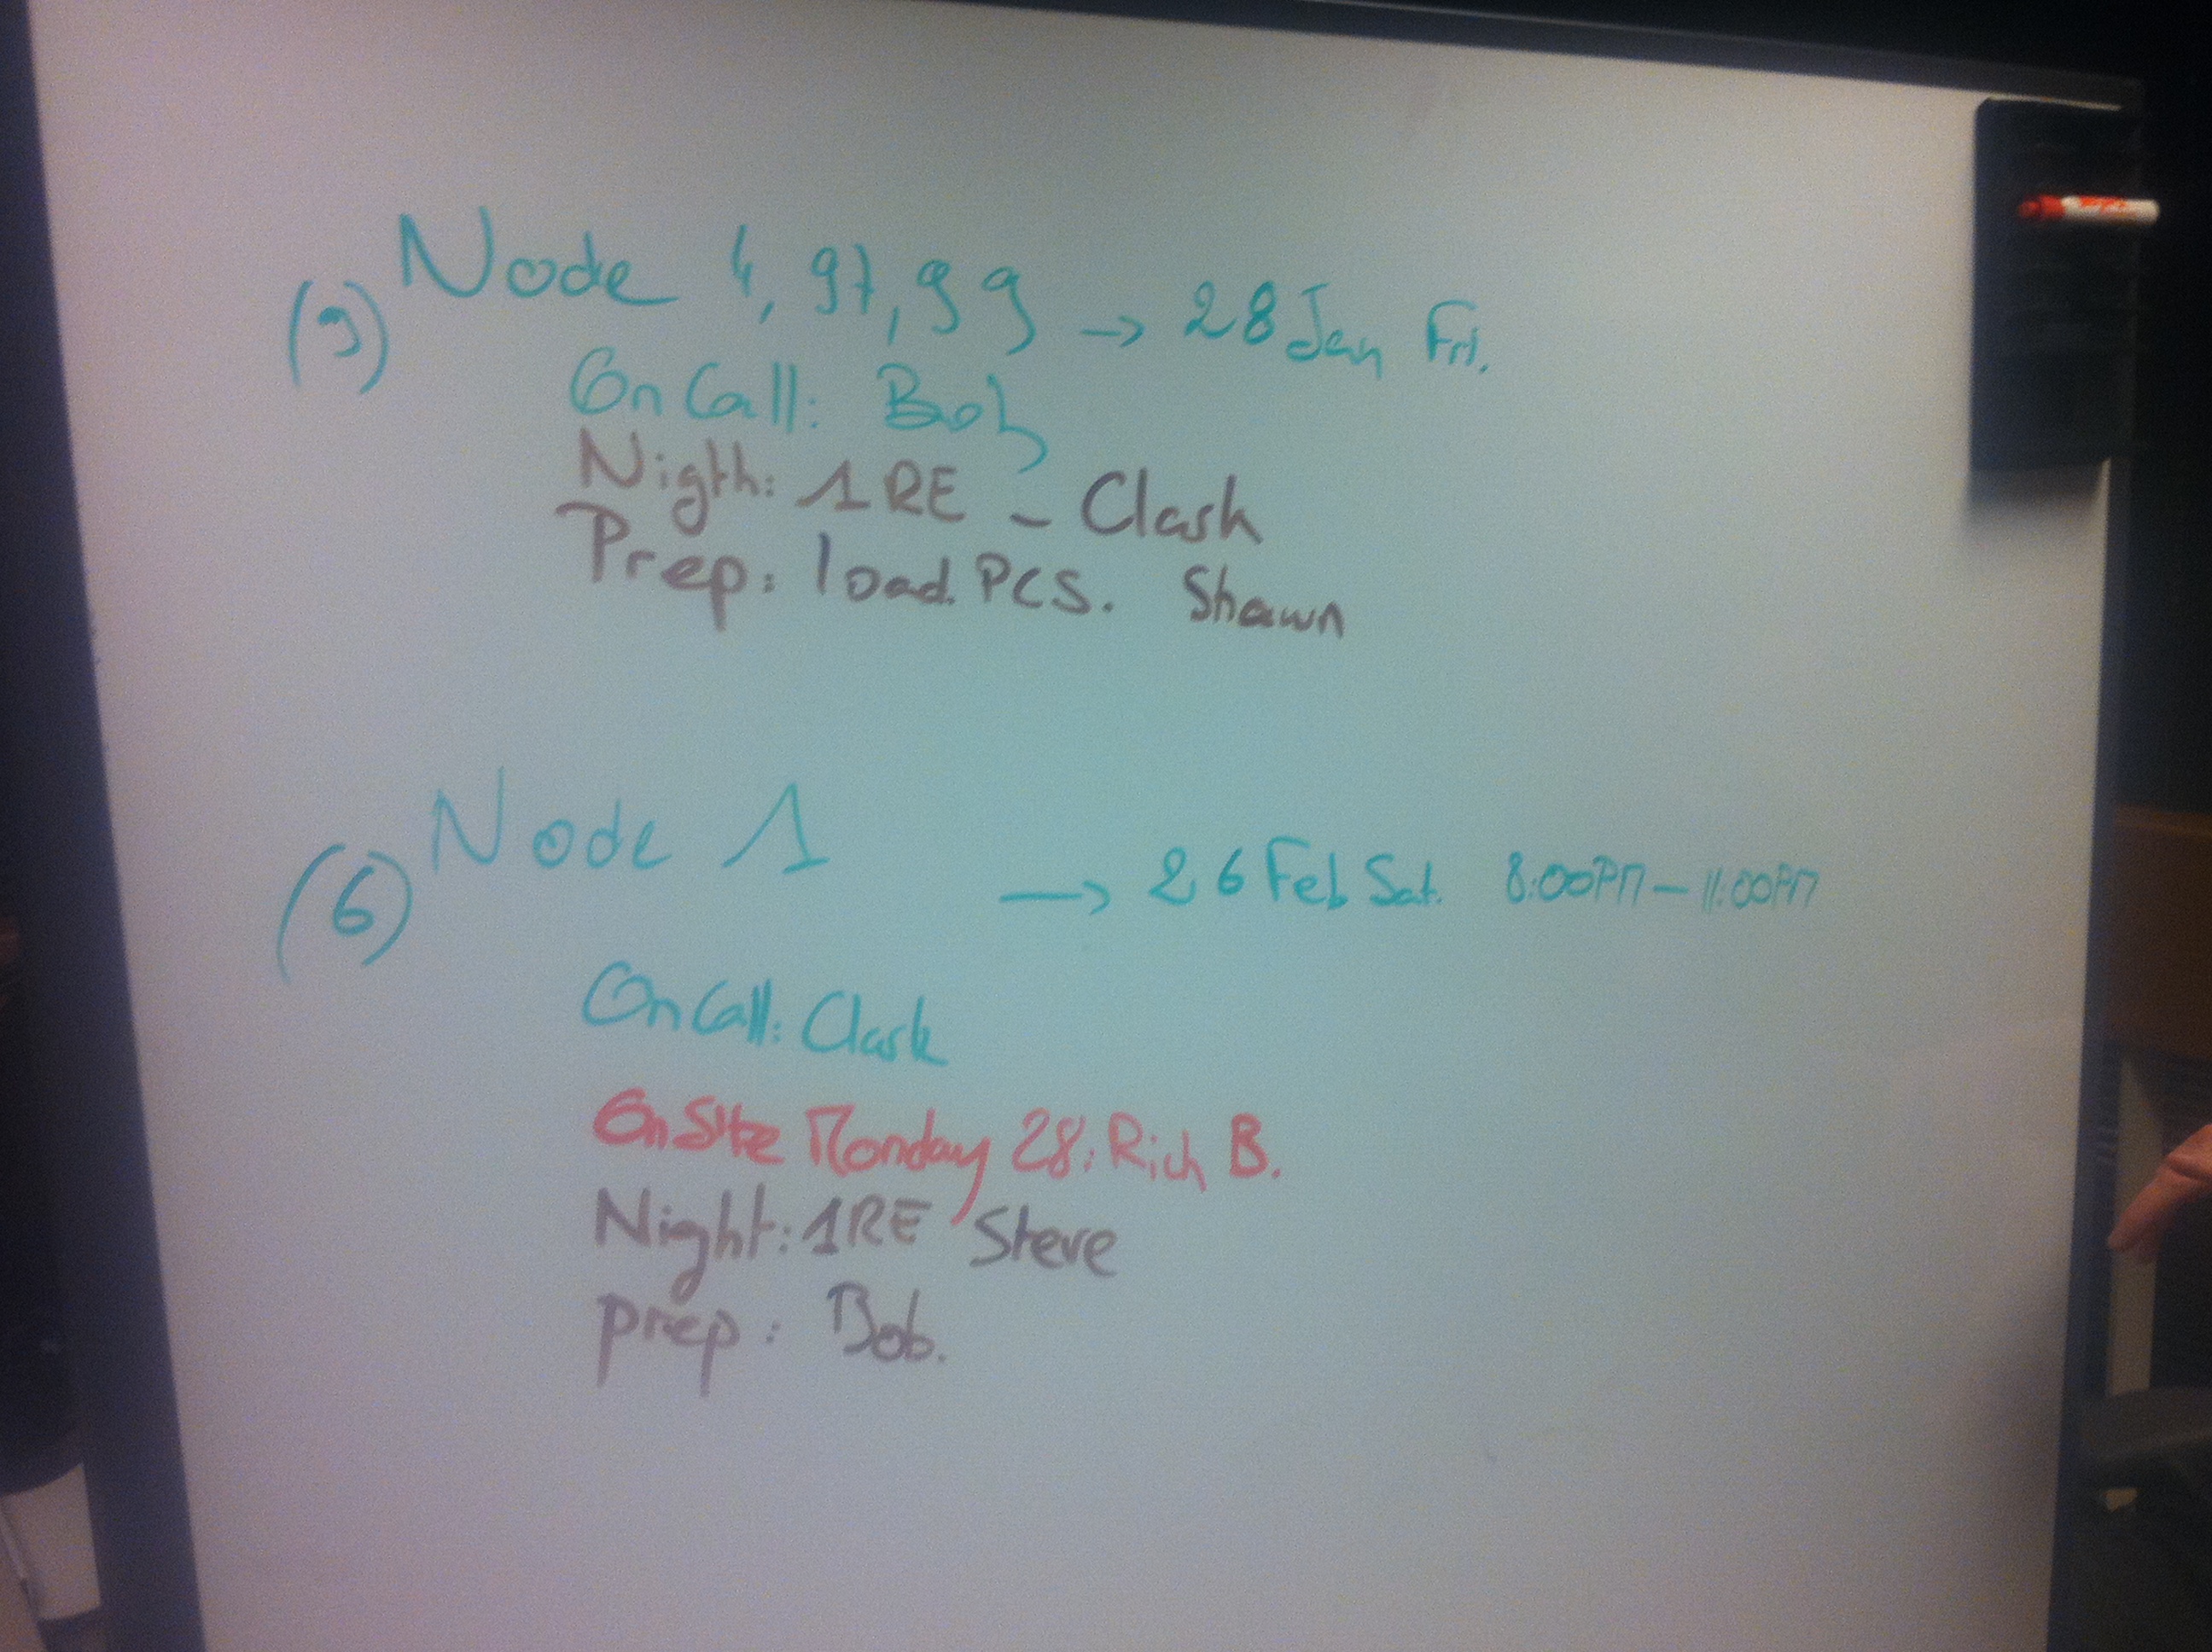 (9) Node 4, 97, 99 → 28 Jan Fri.
On Call: Bob
Nigth: 1 RE - Clark
Prep: load PCS. Shawn
(6) Node 1 → 26 Feb Sat. 8:00PM - 11:00PM
On Call: Clark
On Site Monday 28: Rich B.
Night: 1RE Steve
prep: Bob.